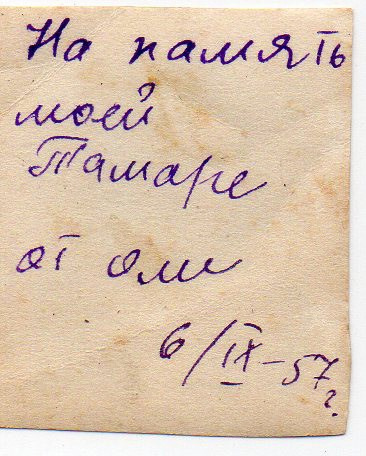 На память
моей
Тамаре
от Оли
6/IX-57г.